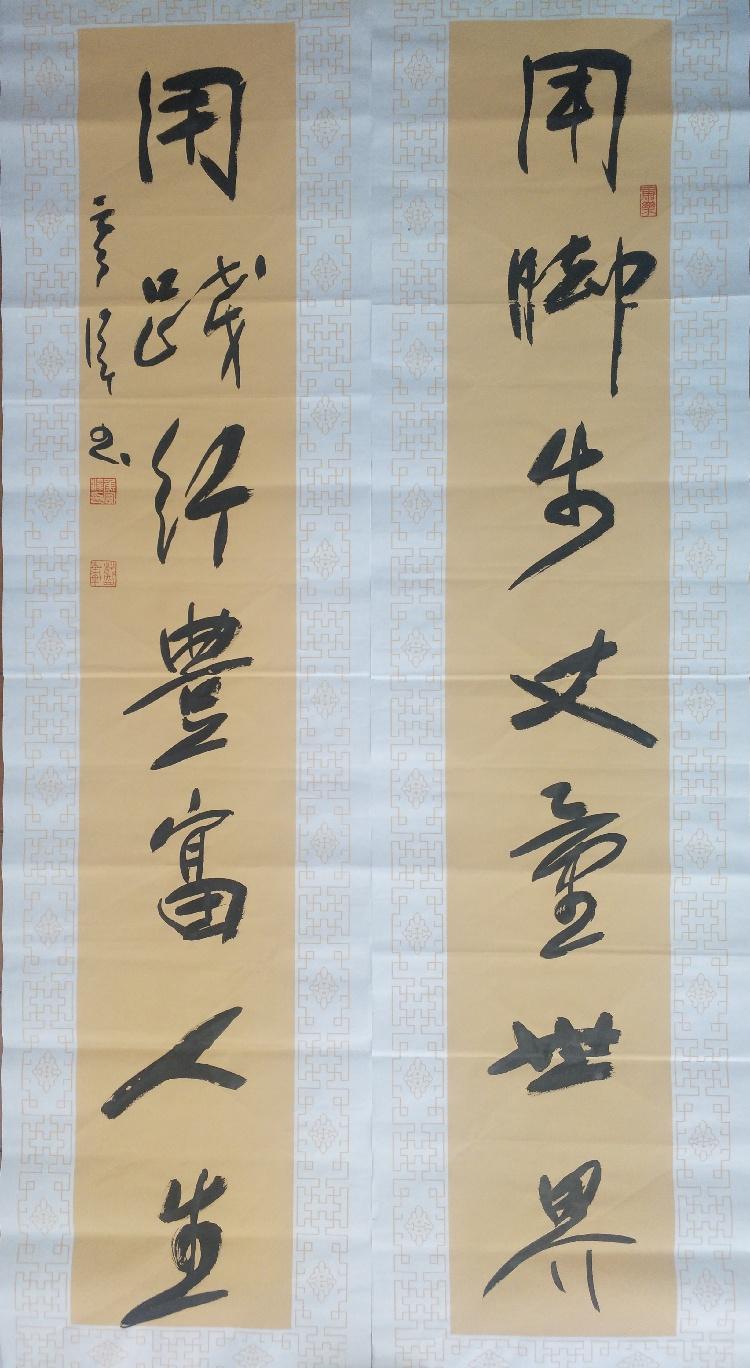 用脚步丈量世界
用踐行豐富人生